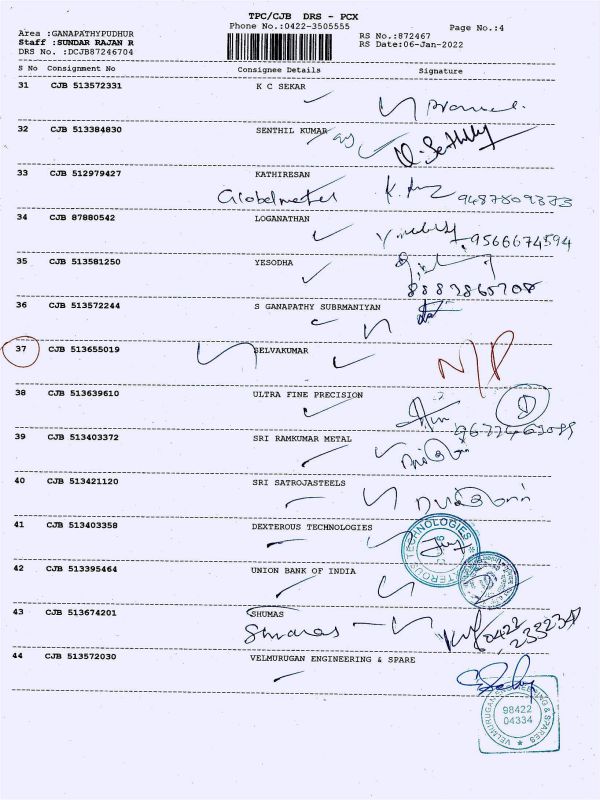 TPC/CJB DRS - PCX
Phone No.:0422-3505555
Page No.:4
Area :GANAPATHYPUDHUR
Staff :SUNDAR RAJAN R
DRS No. :DCJB87246704
RS No.:872467
RS Date:06-Jan-2022
S No Consignment No Consignee Details Signature
31 CJB 513572331 K C SEKAR
32 CJB 513384830 SENTHIL KUMAR
33 CJB 512979427 KATHIRESAN
34 CJB 87880542 LOGANATHAN
9566674594
35 CJB 513581250 YESODHA
8883865708
36 CJB 513572244 S GANAPATHY SUBRMANIYAN
37 CJB 513655019 SELVAKUMAR N/P
38 CJB 513639610 ULTRA FINE PRECISION
39 CJB 513403372 SRI RAMKUMAR METAL
40 CJB 513421120 SRI SATROJASTEELS
41 CJB 513403358 DEXTEROUS TECHNOLOGIES
42 CJB 513395464 UNION BANK OF INDIA
43 CJB 513674201 SHUMAS
0422
44 CJB 513572030 VELMURUGAN ENGINEERING & SPARE
VELMURUGAN ENGINEERING & SPARES
98422
04334